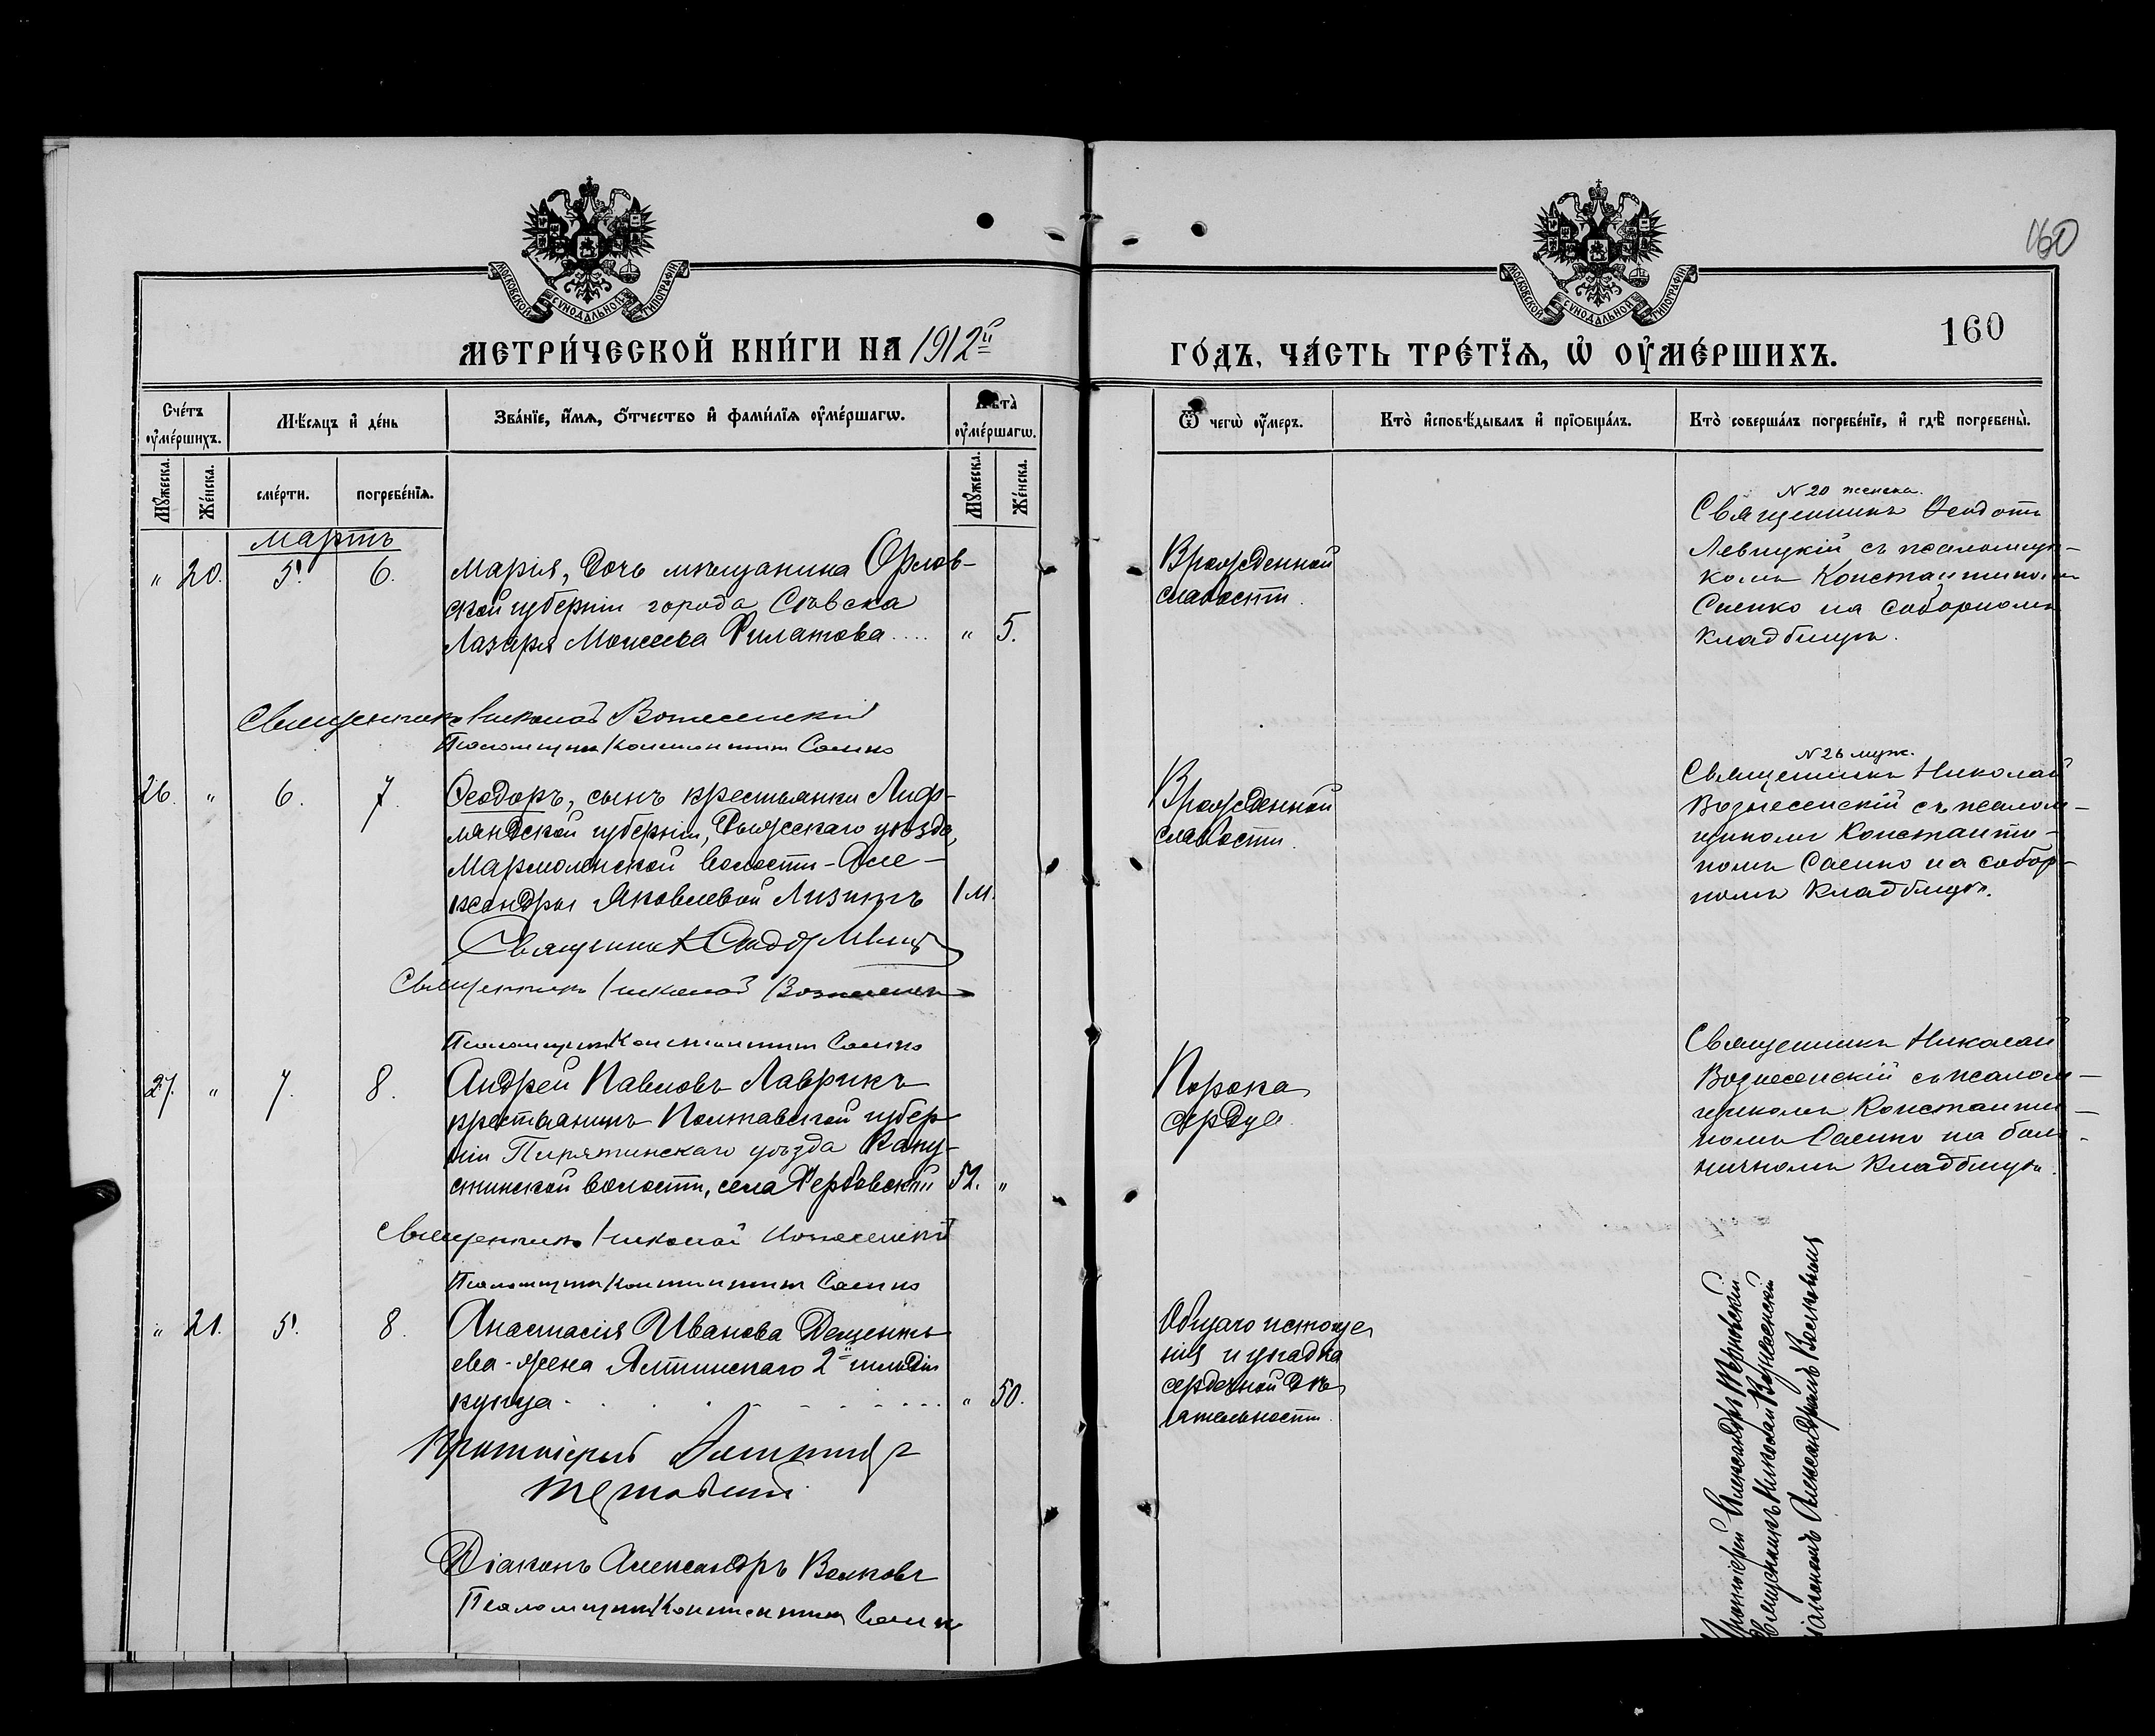 160
МОСКОВСКОЙ СѴНОДАЛЬНОЙ ТИПОГРАФІИ
МОСКОВСКОЙ СѴНОДАЛЬНОЙ ТИПОГРАФІИ
160
МЕТРИ́ЧЕСКОЙ КНИ́ГИ НА 1912й
ГО́ДЪ, ЧА́СТЬ ТРЕ́ТЇѦ, Ѡ҆ ОУ҆МЕ́РШИХЪ.
Сче́тъ оу҆ме́ршихъ.
Мѣсѧцъ и҆ де́нь
Зва́нїе, и҆́мѧ, ѻ҆́тчество и҆ фами́лїѧ оу҆ме́ршагѡ.
Лѣта̀ оу҆ме́ршагѡ.
Ѿ чегѡ̀ оу҆́меръ.
Кто̀ и҆сповѣ́дывалъ и҆ прїѡбща́лъ.
Кто̀ соверша́лъ погребе́нїе, и҆ гдѣ̀ погребены̀.
Мꙋ́жеска.
Же́нска.
сме́рти.
погребе́нїѧ.
Мꙋ́жеска.
Же́нска.
мартъ
" 20. 5. 6.
Марія, дочь мѣщанина Орлов-
ской губерніи города Сѣвска
Лазаря Моисеева Филатова .... " 5.
Врожденной
слабости.
N 20 женска.
Священникъ Ѳеодотъ
Левицкій съ псаломщи-
комъ Константиномъ
Саенко на соборномъ
кладбищѣ.
Священникъ Николай Вознесенскій
Псаломщикъ Константинъ Саенко
26. " 6. 7.
Ѳеодоръ, сынъ крестьянки Лиф-
ляндской губерніи, уѣзда,
волости - Але-
ксандры Яковлевой 1 м.
Врожденной
слабости.
N 26 муж.
Священникъ Николай
Вознесенскій съ псалом-
щикомъ Константи-
номъ Саенко на собор-
номъ кладбищѣ.
Священникъ
Священникъ Николай Вознесенскій
Псаломщикъ Константинъ Саенко
27. " 7. 8.
Андрей Павловъ Лаврикъ
крестьянинъ Полтавской губер-
ніи Пирятинскаго уѣзда Капу-
стинской волости, села 52. "
Порока
сердца.
Священникъ Николай
Вознесенскій съ псалом-
щикомъ Константи-
номъ Саенко на боль-
ничномъ кладбищѣ.
Священникъ Николай Вознесенскій
Псаломщикъ Константинъ Саенко
" 21. 5. 8.
Анастасія Иванова Демentь-
ева - жена Ялтинскаго 2й гильдіи
купца . . . . . . . " 50.
Общаго истоще-
нія и упадка
сердечной дѣ-
ятельности.
Протоіерей Александръ Терновскій
Священникъ Николай Вознесенскій
діакономъ Александромъ Волковымъ
Протоіерей Александръ
Терновскій
Діаконъ Александръ Волковъ
Псаломщикъ Константинъ Саенко